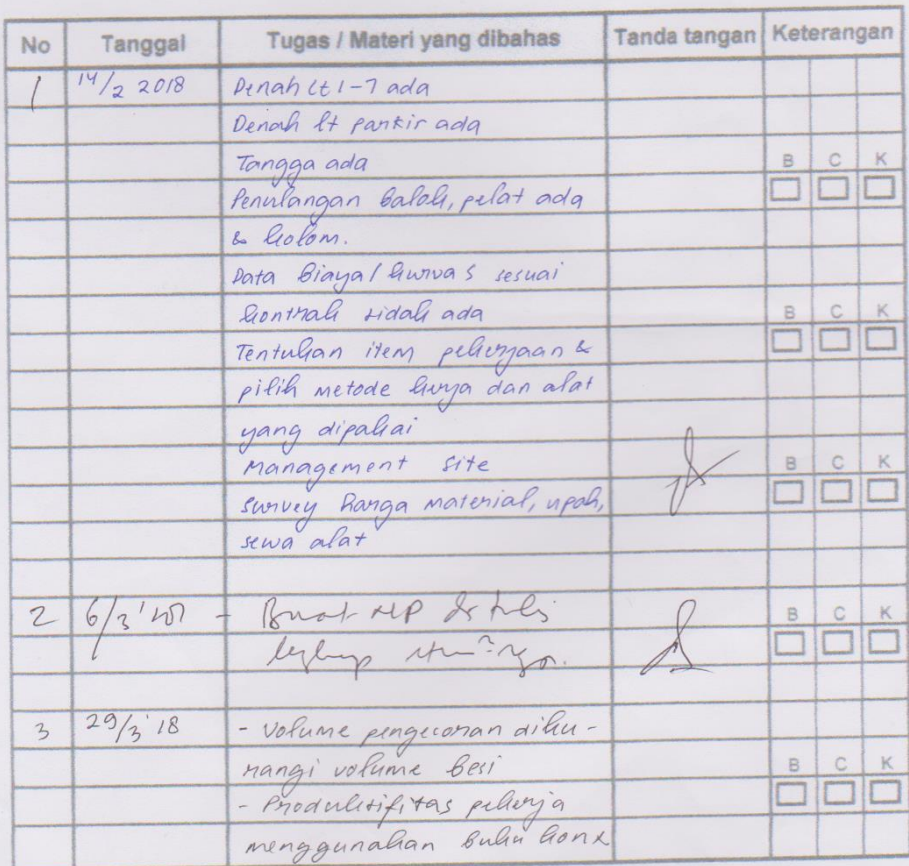 No Tanggal Tugas / Materi yang dibahas Tanda tangan Keterangan
1 14/2 2018 Denah lt 1-7 ada
Denah lt parkir ada
Tangga ada B C K
Penulangan balok, pelat ada
& kolom.
Data Biaya/kurva S sesuai
kontrak tidak ada B C K
Tentukan item pekerjaan &
pilih metode kerja dan alat
yang dipakai
Management site B C K
Survey harga material, upah,
sewa alat
2 6/3' - Buat B C K
3 29/3'18 - Volume pengecoran diku-
rangi volume besi B C K
- Produktifitas pekerja
menggunakan buku